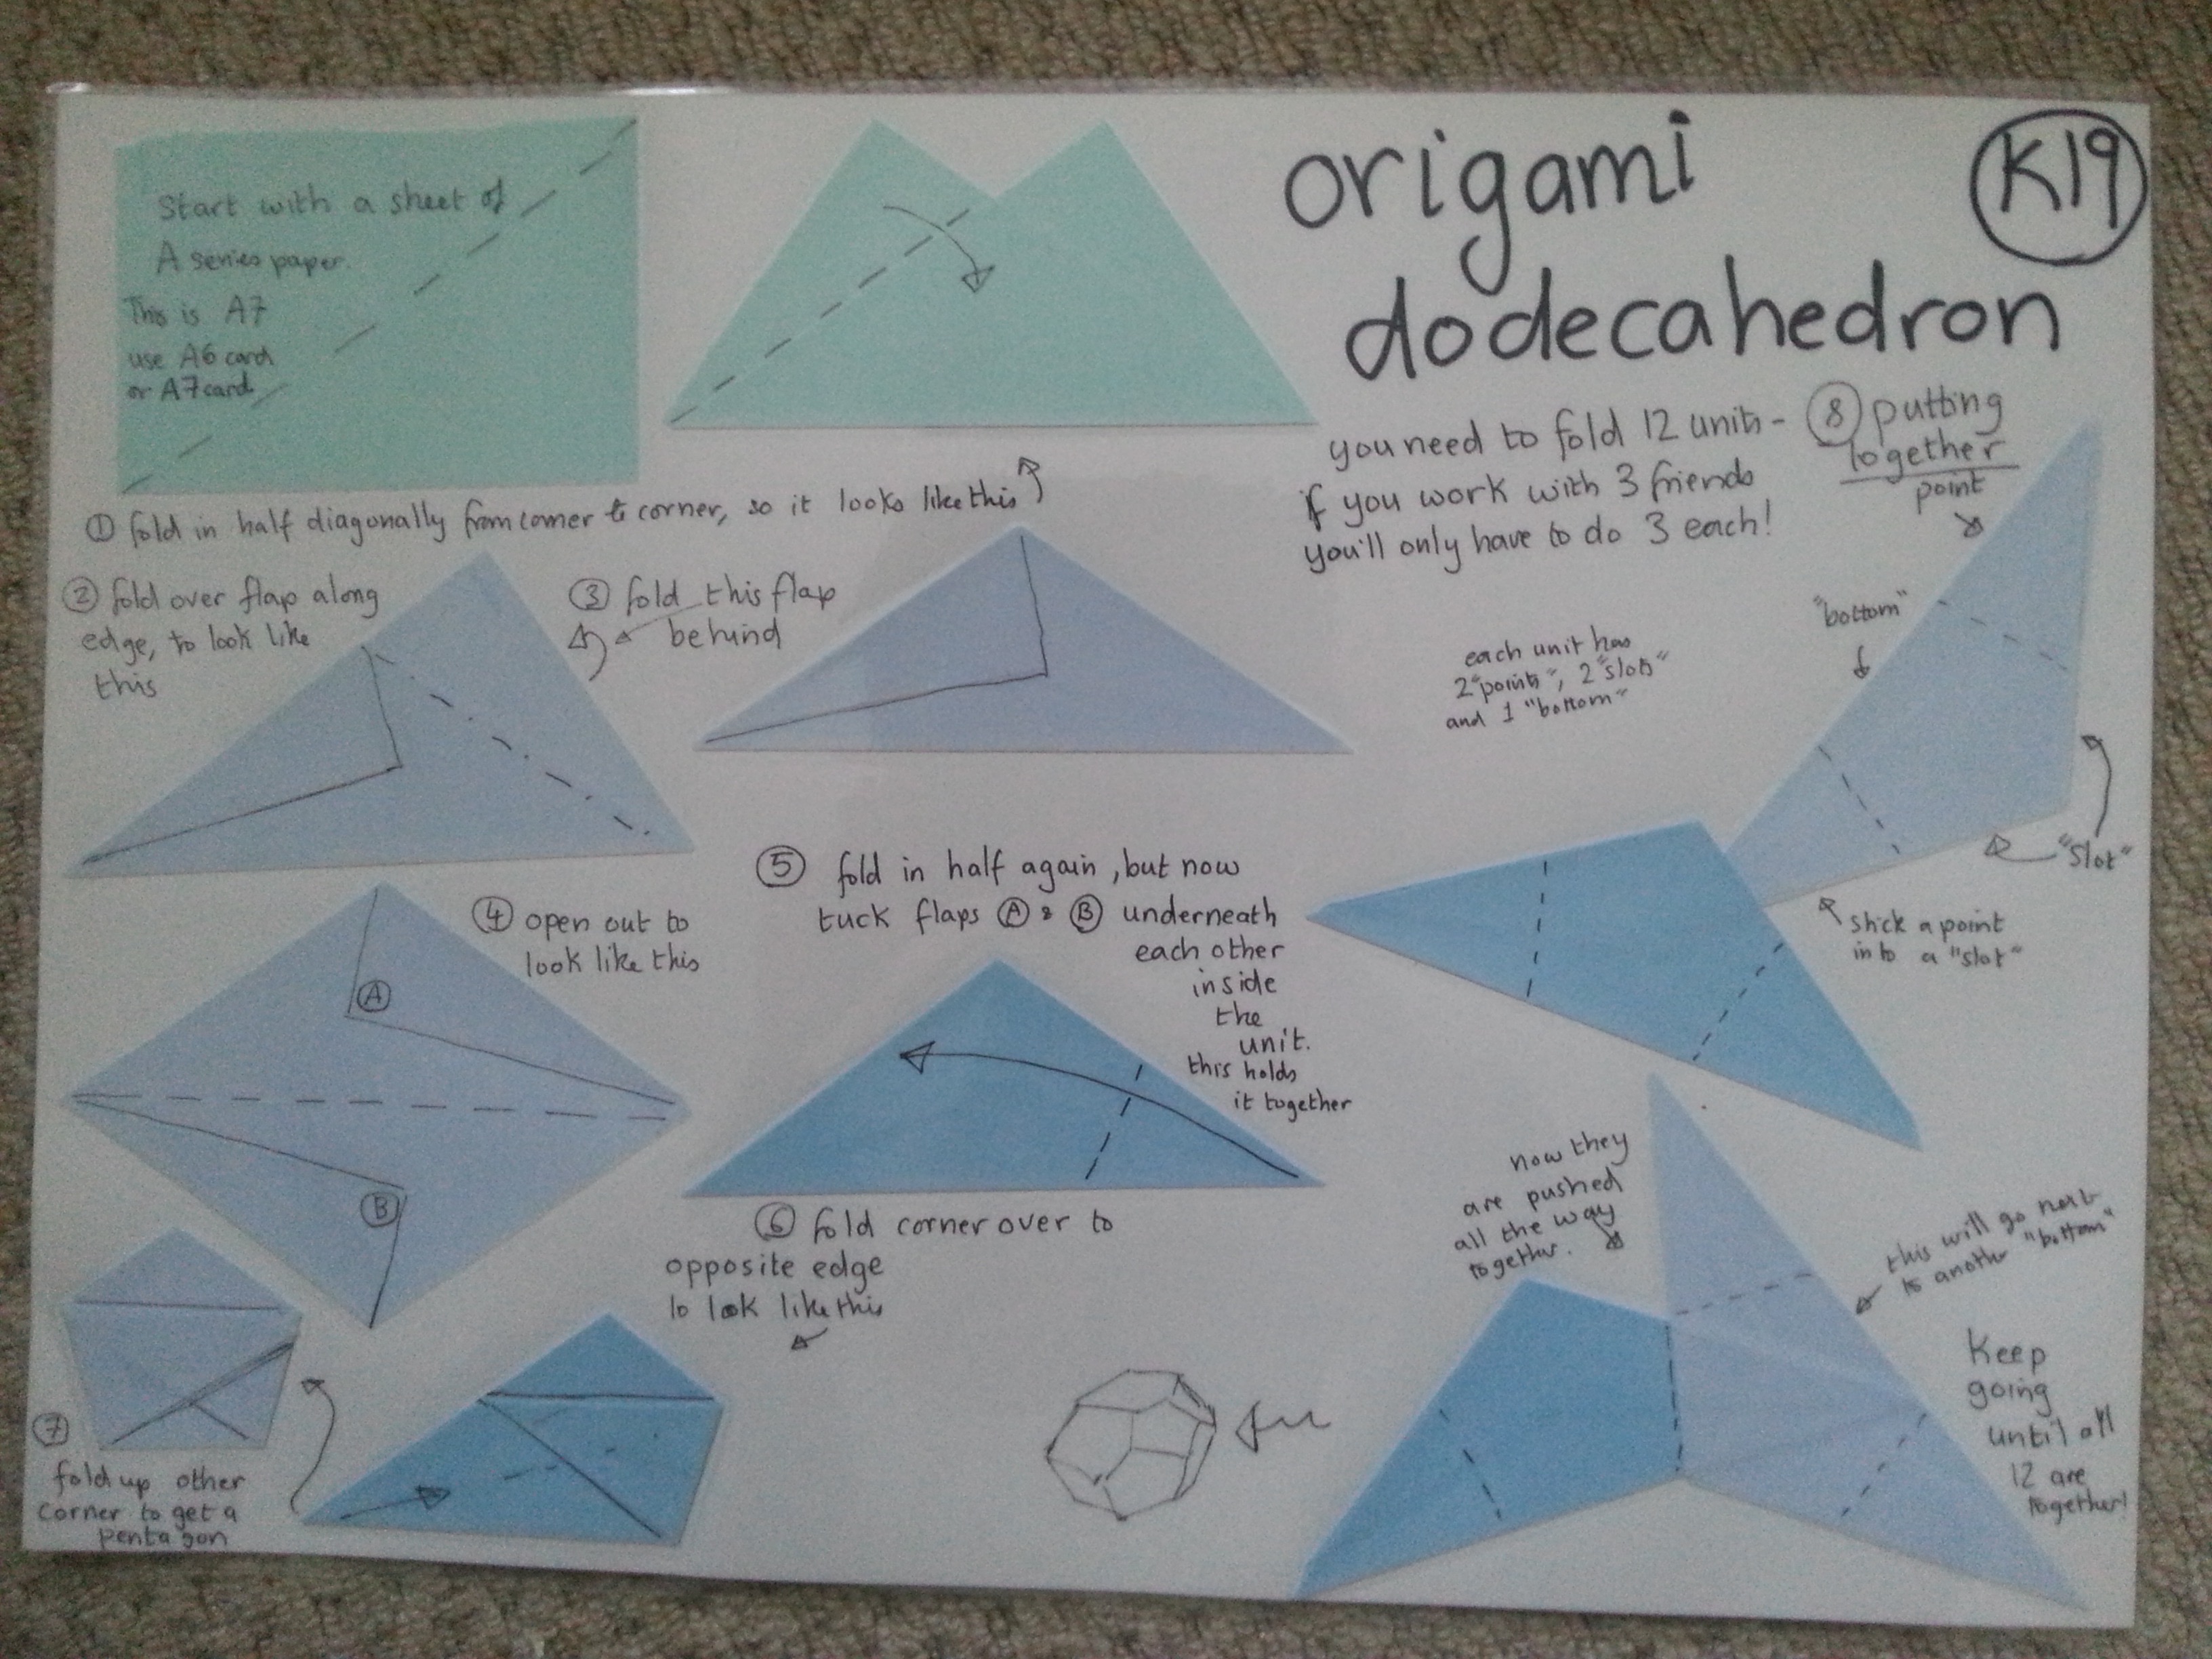 origami
dodecahedron
K19
Start with a sheet of
A series paper.
This is A7
use A6 card
or A7 card
① fold in half diagonally from corner to corner, so it looks like this
② fold over flap along
edge, to look like
this
③ fold this flap
behind
④ open out to
look like this
A
B
⑤ fold in half again, but now
tuck flaps Ⓐ & Ⓑ underneath
each other
inside
the
unit.
this holds
it together
⑥ fold corner over to
opposite edge
to look like this
⑦
fold up other
corner to get a
pentagon
you need to fold 12 units -
if you work with 3 friends
you'll only have to do 3 each!
⑧ putting
together
point
"bottom"
each unit has
2 "points", 2 "slots"
and 1 "bottom"
"slot"
stick a point
into a "slot"
now they
are pushed
all the way
together.
this will go next
to another "bottom"
Keep
going
until all
12 are
together!